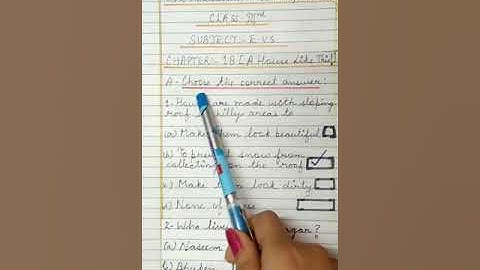 CLASS IIIrd
SUBJECT - E.V.S
CHAPTER - 18 [A House Like This]
A - Choose the correct answer:
1 - are made with sloping
roof hilly areas to
(a) Make them look beautiful
(b) To snow from
collecting on the roof
Make look dirty
None of
2 - Who
(a) Naseem
(b) Bhupen